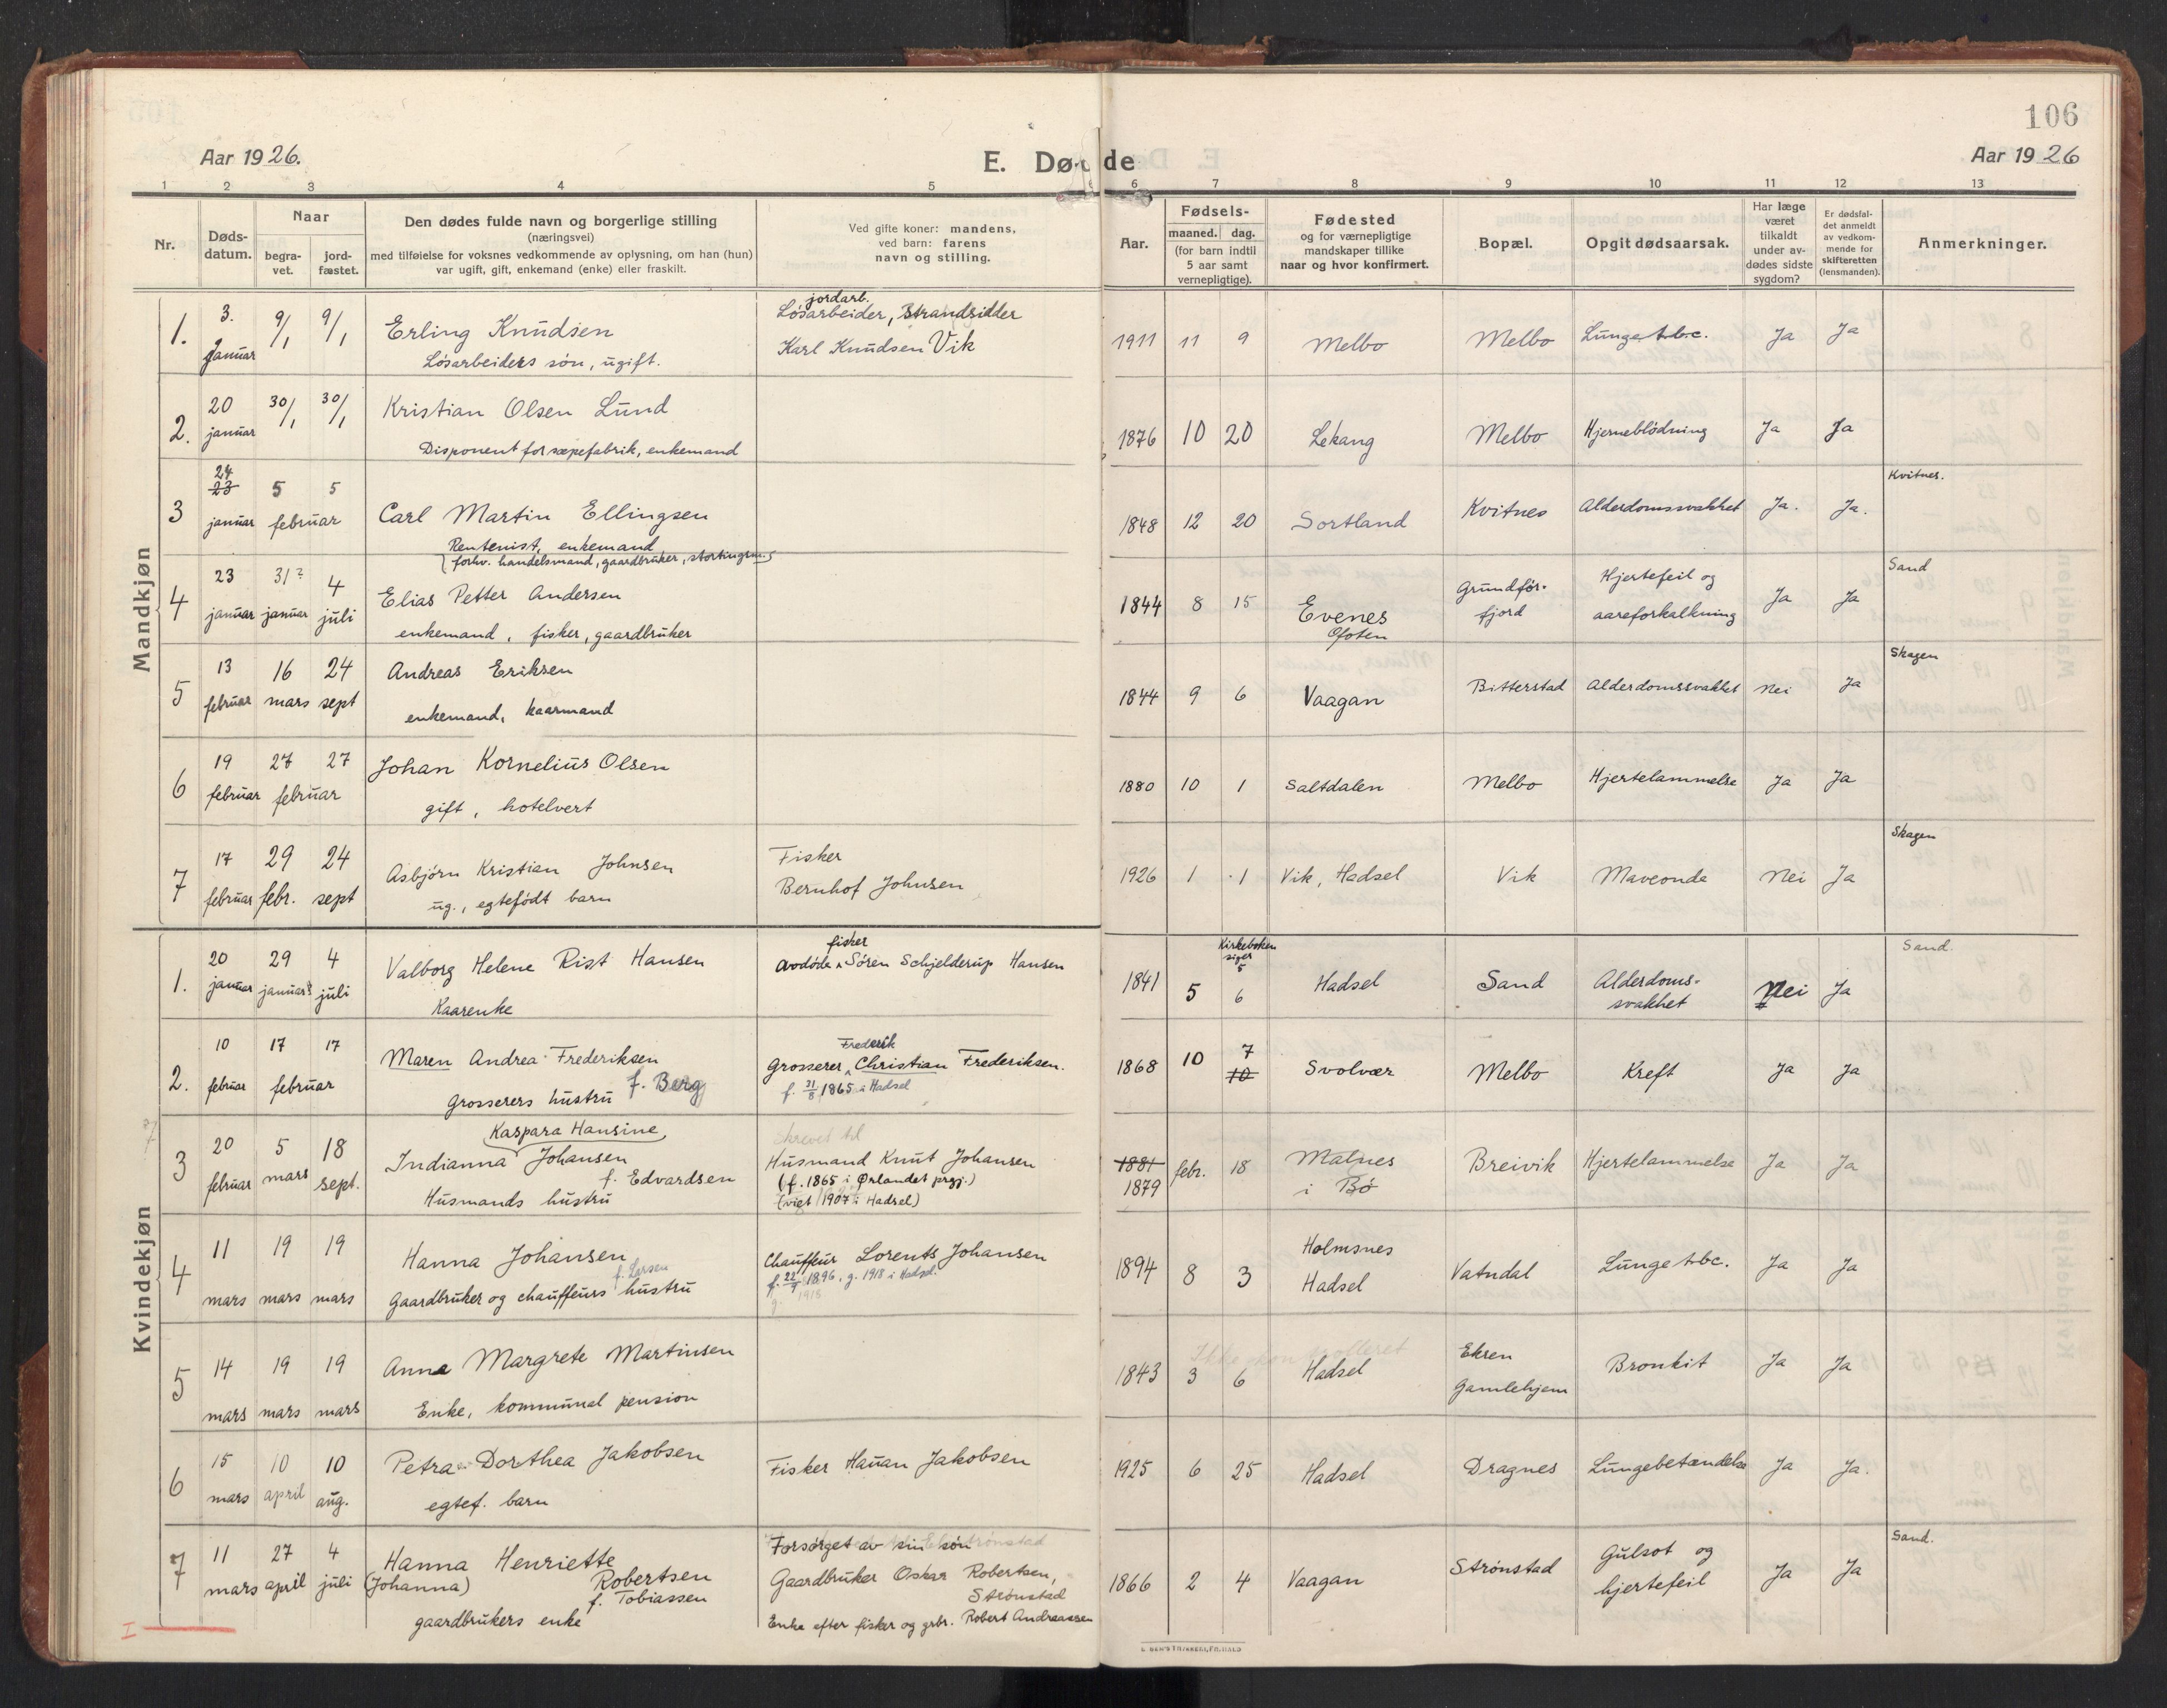 106
Aar 1926.
E. Døde
Aar 1926
1 2 3 4 5 6 7 8 9 10 11 12 13
Nr.
Døds-
datum.
Naar
begra-
vet.
jord-
fæstet.
Den dødes fulde navn og borgerlige stilling
(næringsvei)
med tilføielse for voksnes vedkommende av oplysning, om han (hun)
var ugift, gift, enkemand (enke) eller fraskilt.
Ved gifte koner: mandens,
ved barn: farens
navn og stilling.
Aar.
Fødsels-
maaned. dag.
(for barn indtil
5 aar samt
vernepligtige).
Fødested
og for værnepligtige
mandskaper tillike
naar og hvor konfirmert.
Bopæl.
Opgit dødsaarsak.
Har læge
været
tilkaldt
under av-
dødes sidste
sygdom?
Er dødsfal-
det anmeldt
av vedkom-
mende for
skifteretten
(lensmanden).
Anmerkninger.
Mandkjøn
1. 3. Januar 9/1 9/1
Erling Knudsen
Løsarbeiders søn, ugift.
jordarb.
Løsarbeider, Strandsidder
Karl Knudsen Vik
1911 11 9 Melbo Melbo Lunge t.b.c. Ja Ja
2. 20 januar 30/1 30/1
Kristian Olsen Lund
Disponent for sæpefabrik, enkemand
1876 10 20 Lekang Melbo Hjerneblødning Ja Ja
3 24 23 januar 5 5 februar
Carl Martin Ellingsen
Rentenist, enkemand
(forhv. handelsmand, gaardbruker, stortingsm.)
1848 12 20 Sortland Kvitnes Alderdomssvakhet Ja. Ja. Kvitnes.
4 23 januar 31? januar 4 juli
Elias Petter Andersen
enkemand, fisker, gaardbruker
1844 8 15 Evenes
Ofoten
Grundfør-
fjord
Hjertefeil og
aareforkalkning
Ja Ja Sand
5 13 februar 16 mars 24 sept
Andreas Eriksen
enkemand, kaarmand
1844 9 6 Vaagan Bitterstad Alderdomssvakhet Nei Ja Skagen
6 19 februar 27 27 februar
Johan Kornelius Olsen
gift, hotelvert
1880 10 1 Saltdalen Melbo Hjertelammelse Ja Ja
7 17 februar 29 febr. 24 sept
Asbjørn Kristian Johnsen
ug., egtefødt barn
Fisker
Bernhof Johnsen
1926 1 1 Vik, Hadsel Vik Maveonde Nei Ja Skagen
Kvindekjøn
1. 20 januar 29 januar 4 juli
Valborg Helene Rist Hansen
Kaarenke
fisker
avdøde Søren Schjelderup Hansen
Kirkeboken
siger
5
1841 5 6 Hadsel Sand Alderdoms-
svakhet
Nei Ja Sand.
2. 10 februar 17 17 februar
Maren Andrea Frederiksen
f. Berg
Grosserers hustru
Frederik
Grosserer Christian Frederiksen.
f. 31/8 1865 i Hadsel
1868 10 7 10 Svolvær Melbo Kreft Ja Ja
3 20 februar 5 mars 18 sept.
Kaspara Hansine
Indianna Johansen
f. Edvardsen
Husmands hustru
skrevet til
Husmand Knut Johansen
(f. 1865 i Ørlandet prgj.)
(viet 1907 i Hadsel)
1881
1879 febr. 18 Malnes
i Bø
Breivik Hjertelammelse Ja Ja
4 11 mars 19 mars 19 mars
Hanna Johansen
f. Larsen
Gaardbruker og chauffeurs hustru
Chauffeur Lorents Johansen
f. 22/9 1896, g. 1918 i Hadsel.
g. 1918
1894 8 3 Holmsnes
Hadsel
Vatndal Lunge tbc. Ja Ja
5 14 mars 19 mars 19 mars
Anna Margrete Martinsen
Enke, kommunal pension
1843 3 6 Hadsel Ekren
Gamlehjem
Bronkit Ja Ja
6 15 mars 10 april 10 aug.
Petra Dorthea Jakobsen
egtef. barn
Fisker Hauan Jakobsen
1925 6 25 Hadsel Dragnes Lungebetændelse Ja Ja.
7 11 mars 27 april 4 juli
Hanna Henriette
(Johanna) Robertsen
f. Tobiassen
gaardbrukers enke
Forsørget av sin søn
Gaardbruker Oskar Robertsen,
Strønstad
Enke efter fisker og grbr. Robert Andreassen
1866 2 4 Vaagan Strønstad Gulsot og
hjertefeil
Ja Ja Sand.
I